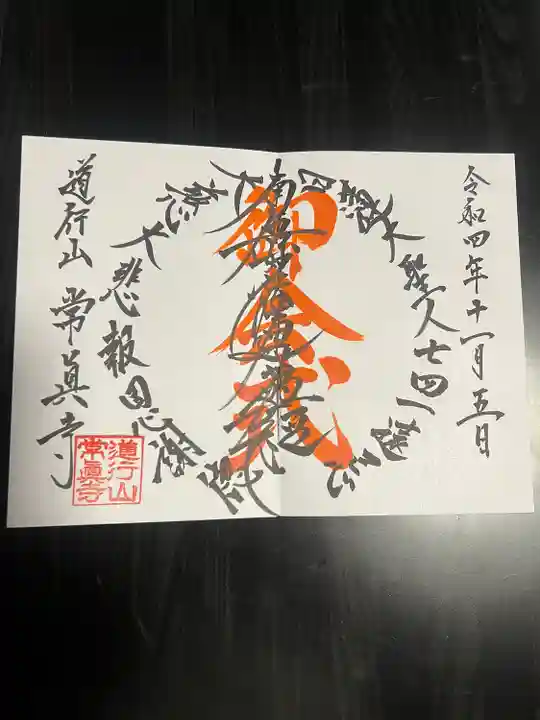 令和四年十一月五日
南無妙法蓮華経
御会式
日蓮大聖人七四一遠忌
大慈大悲報恩謝徳
道行山 常眞寺
道行山
常眞寺